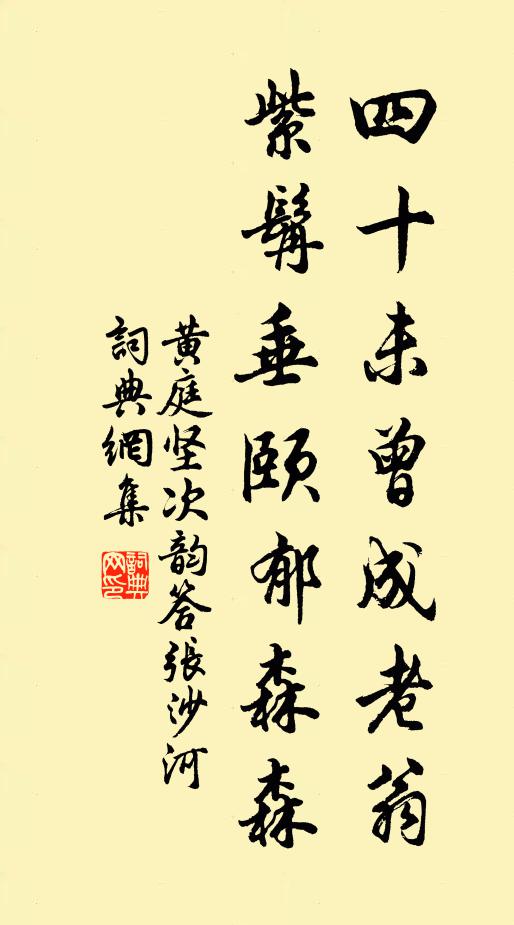 四十未曾成老翁
紫髯垂頤郁森森
黄庭坚次韵答張沙河
詞典網集
詞典网印